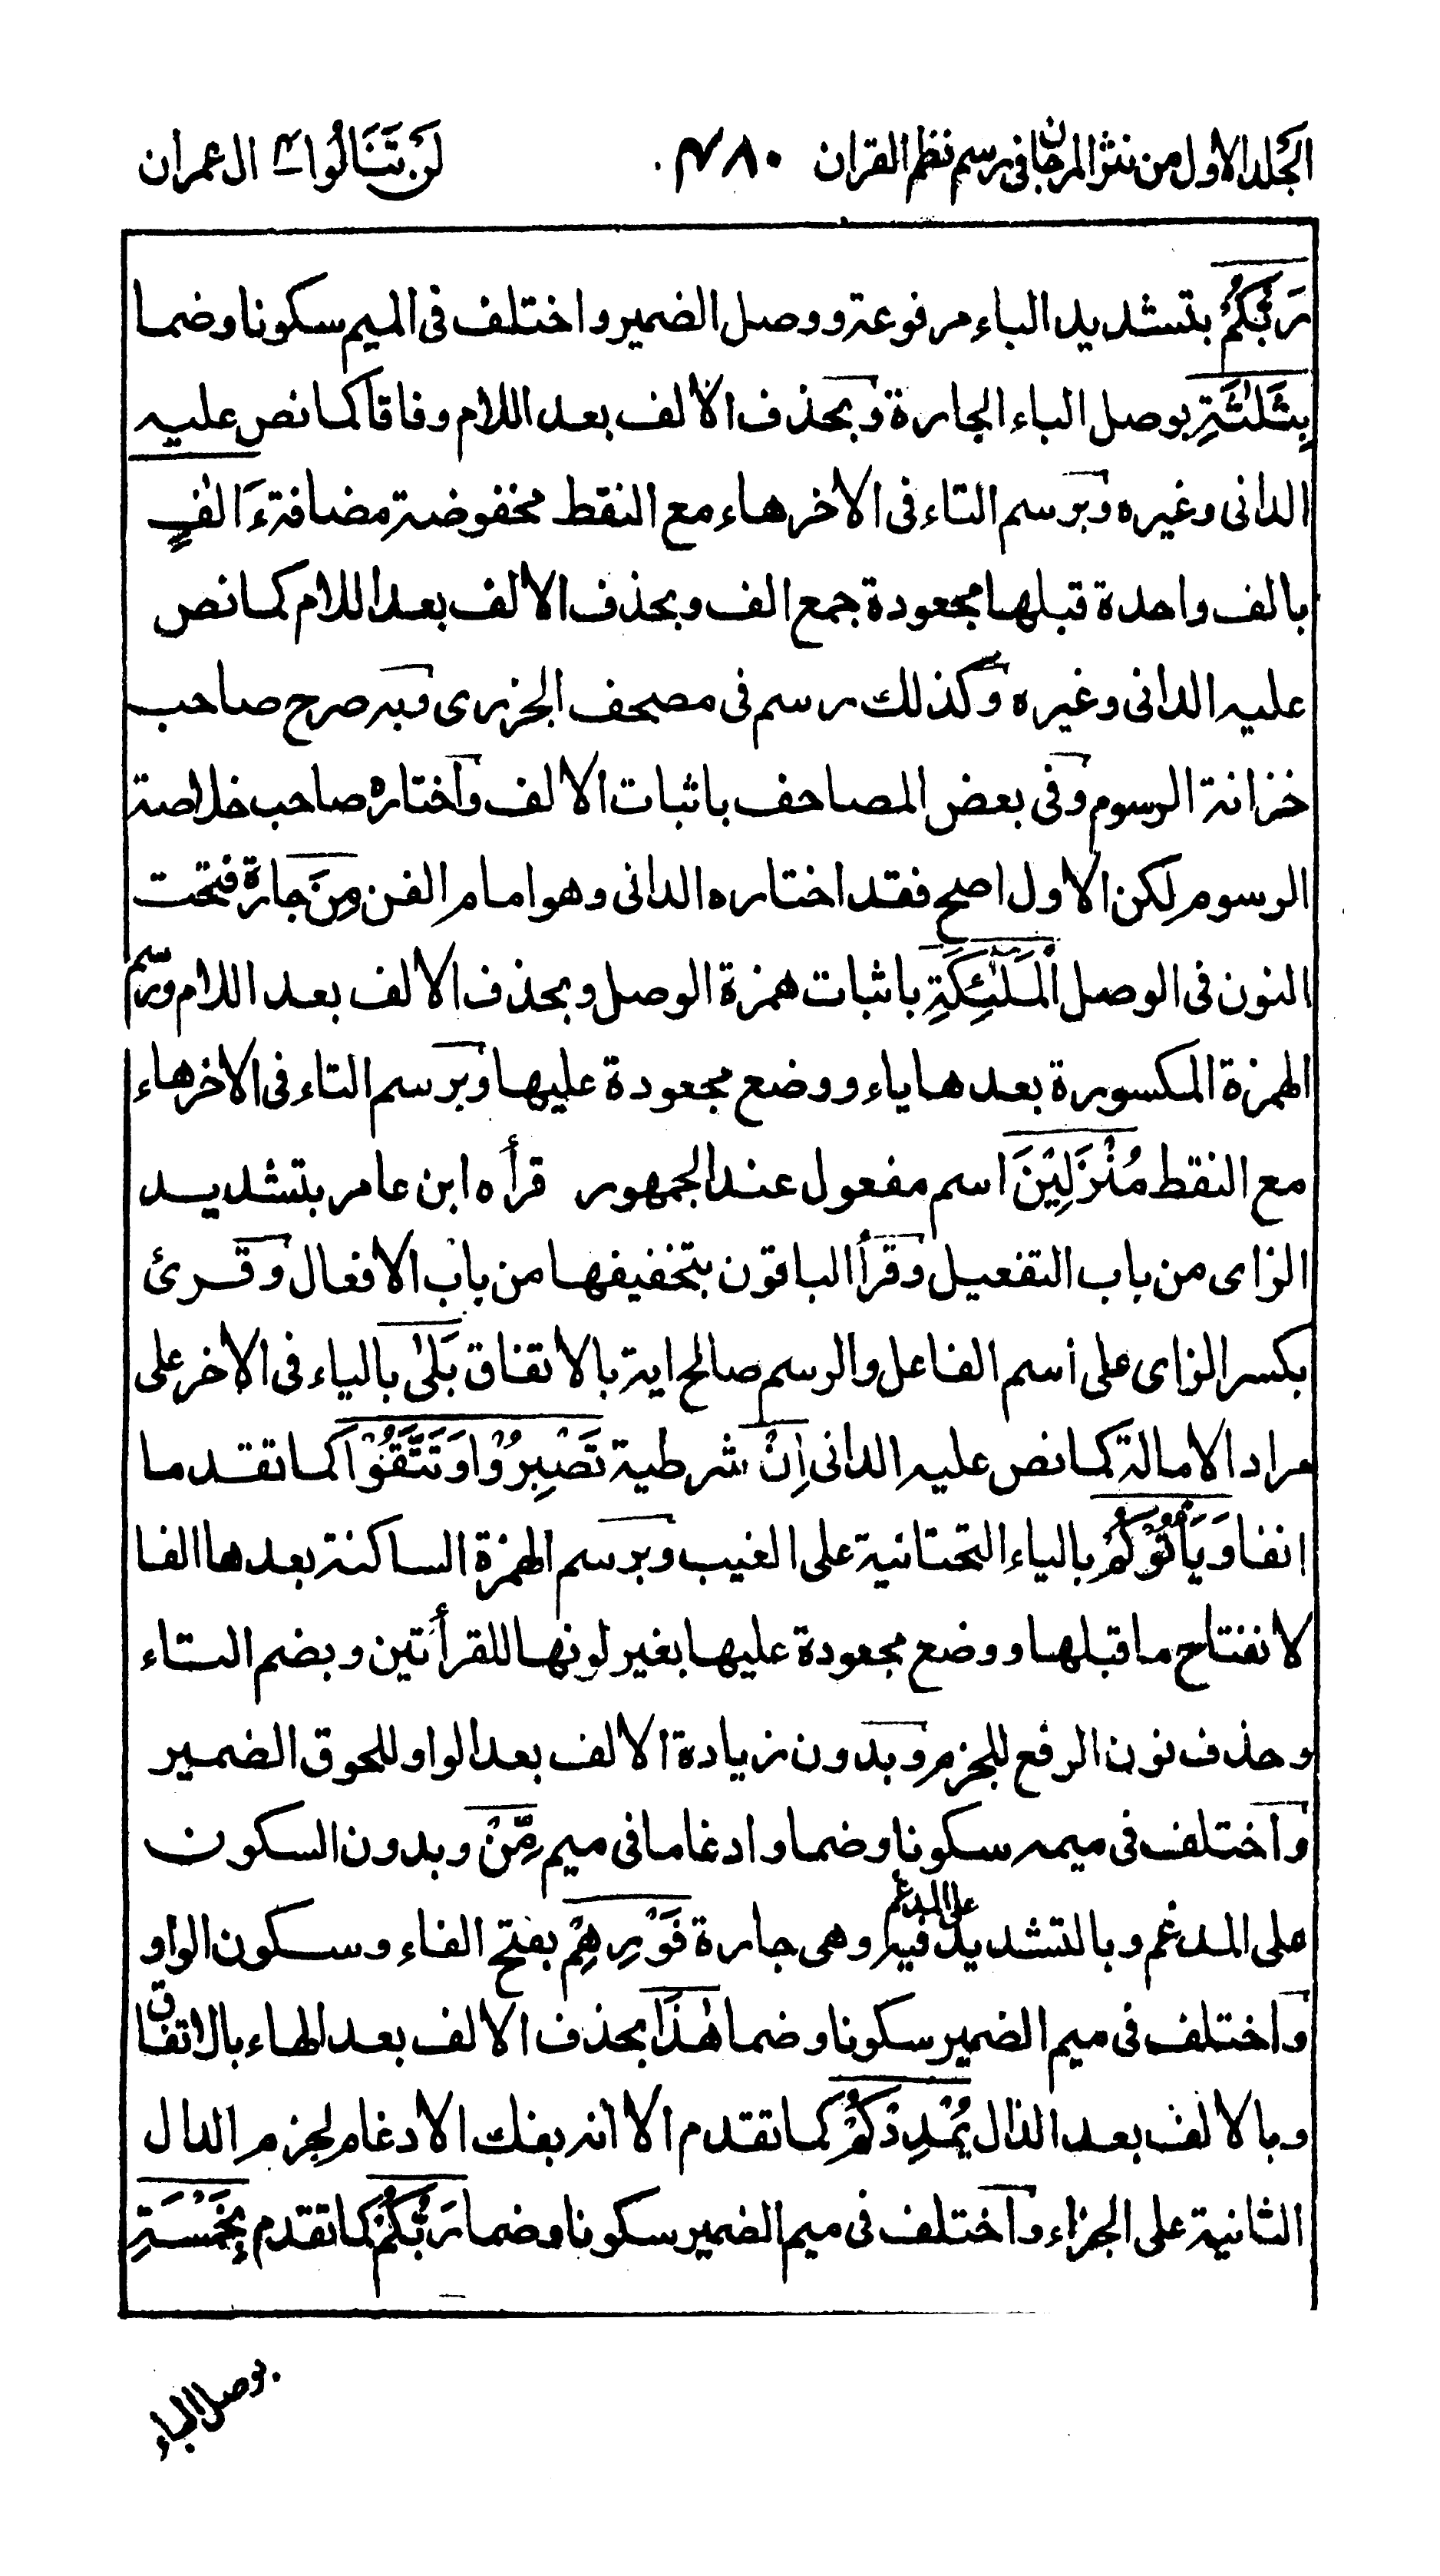 الجلد الاول من نثر المرجان فى رسم نظم القران ۴۸۰ لَنْ تَنَالُوا ۴ ال عمران
رَبُّكُمْ بتشديد الباء مرفوعة ووصل الضمير واختلف فى الميم سكونا وضما
بِثَلٰثَةِ بوصل الباء الجارة وبحذف الالف بعد اللام وفاقا كما نص عليه
الدانى وغيره وبرسم التاء فى الاخر هاء مع النقط مخفوضة مضافة ءَالٰفٍ
بالف واحدة قبلها مجعودة جمع الف وبحذف الالف بعد اللام كما نص
عليه الدانى وغيره وكذلك رسم فى مصحف الجزرى وبه صرح صاحب
خزانة الرسوم وفى بعض المصاحف باثبات الالف واختاره صاحب خلاصة
الرسوم لكن الاول اصح فقد اختاره الدانى وهو امام الفن مِنَ جارة فتحت
النون فى الوصل الْمَلٰٓئِكَةِ باثبات همزة الوصل وبحذف الالف بعد اللام ورسم
الهمزة المكسورة بعدها ياء ووضع مجعودة عليها وبرسم التاء فى الاخر هاء
مع النقط مُنْزَلِيْنَ اسم مفعول عند الجمهور قرأه ابن عامر بتشديد
الزاى من باب التفعيل وقرأ الباقون بتخفيفها من باب الافعال وقرئ
بكسر الزاى على اسم الفاعل والرسم صالح اية بالاتفاق بَلٰى بالياء فى الاخر على
مراد الامالة كما نص عليه الدانى اِنْ شرطية تَصْبِرُوْا وَتَتَّقُوْا كما تقدما
انفا وَيَأْتُوْكُمْ بالياء التحتانية على الغيب وبرسم الهمزة الساكنة بعدها الفا
لانفتاح ما قبلها ووضع مجعودة عليها بغير لونها للقرأتين وبضم التاء
وحذف نون الرفع للجزم وبدون زيادة الالف بعد الواو للحوق الضمير
واختلف فى ميمه سكونا وضما وادغاما فى ميم مِّنْ وبدون السكون
على المدغم وبالتشديد على المدغم فيه وهى جارة فَوْرِهِمْ بفتح الفاء وسكون الواو
واختلف فى ميم الضمير سكونا وضما هٰذَا بحذف الالف بعد الهاء بالاتفاق
وبالالف بعد الذال يُمْدِدْكُمْ كما تقدم الا انه بفك الادغام لجزم الدال
الثانية على الجزاء واختلف فى ميم الضمير سكونا وضما رَبُّكُمْ كما تقدم بِخَمْسَةِ
بوصل الباء